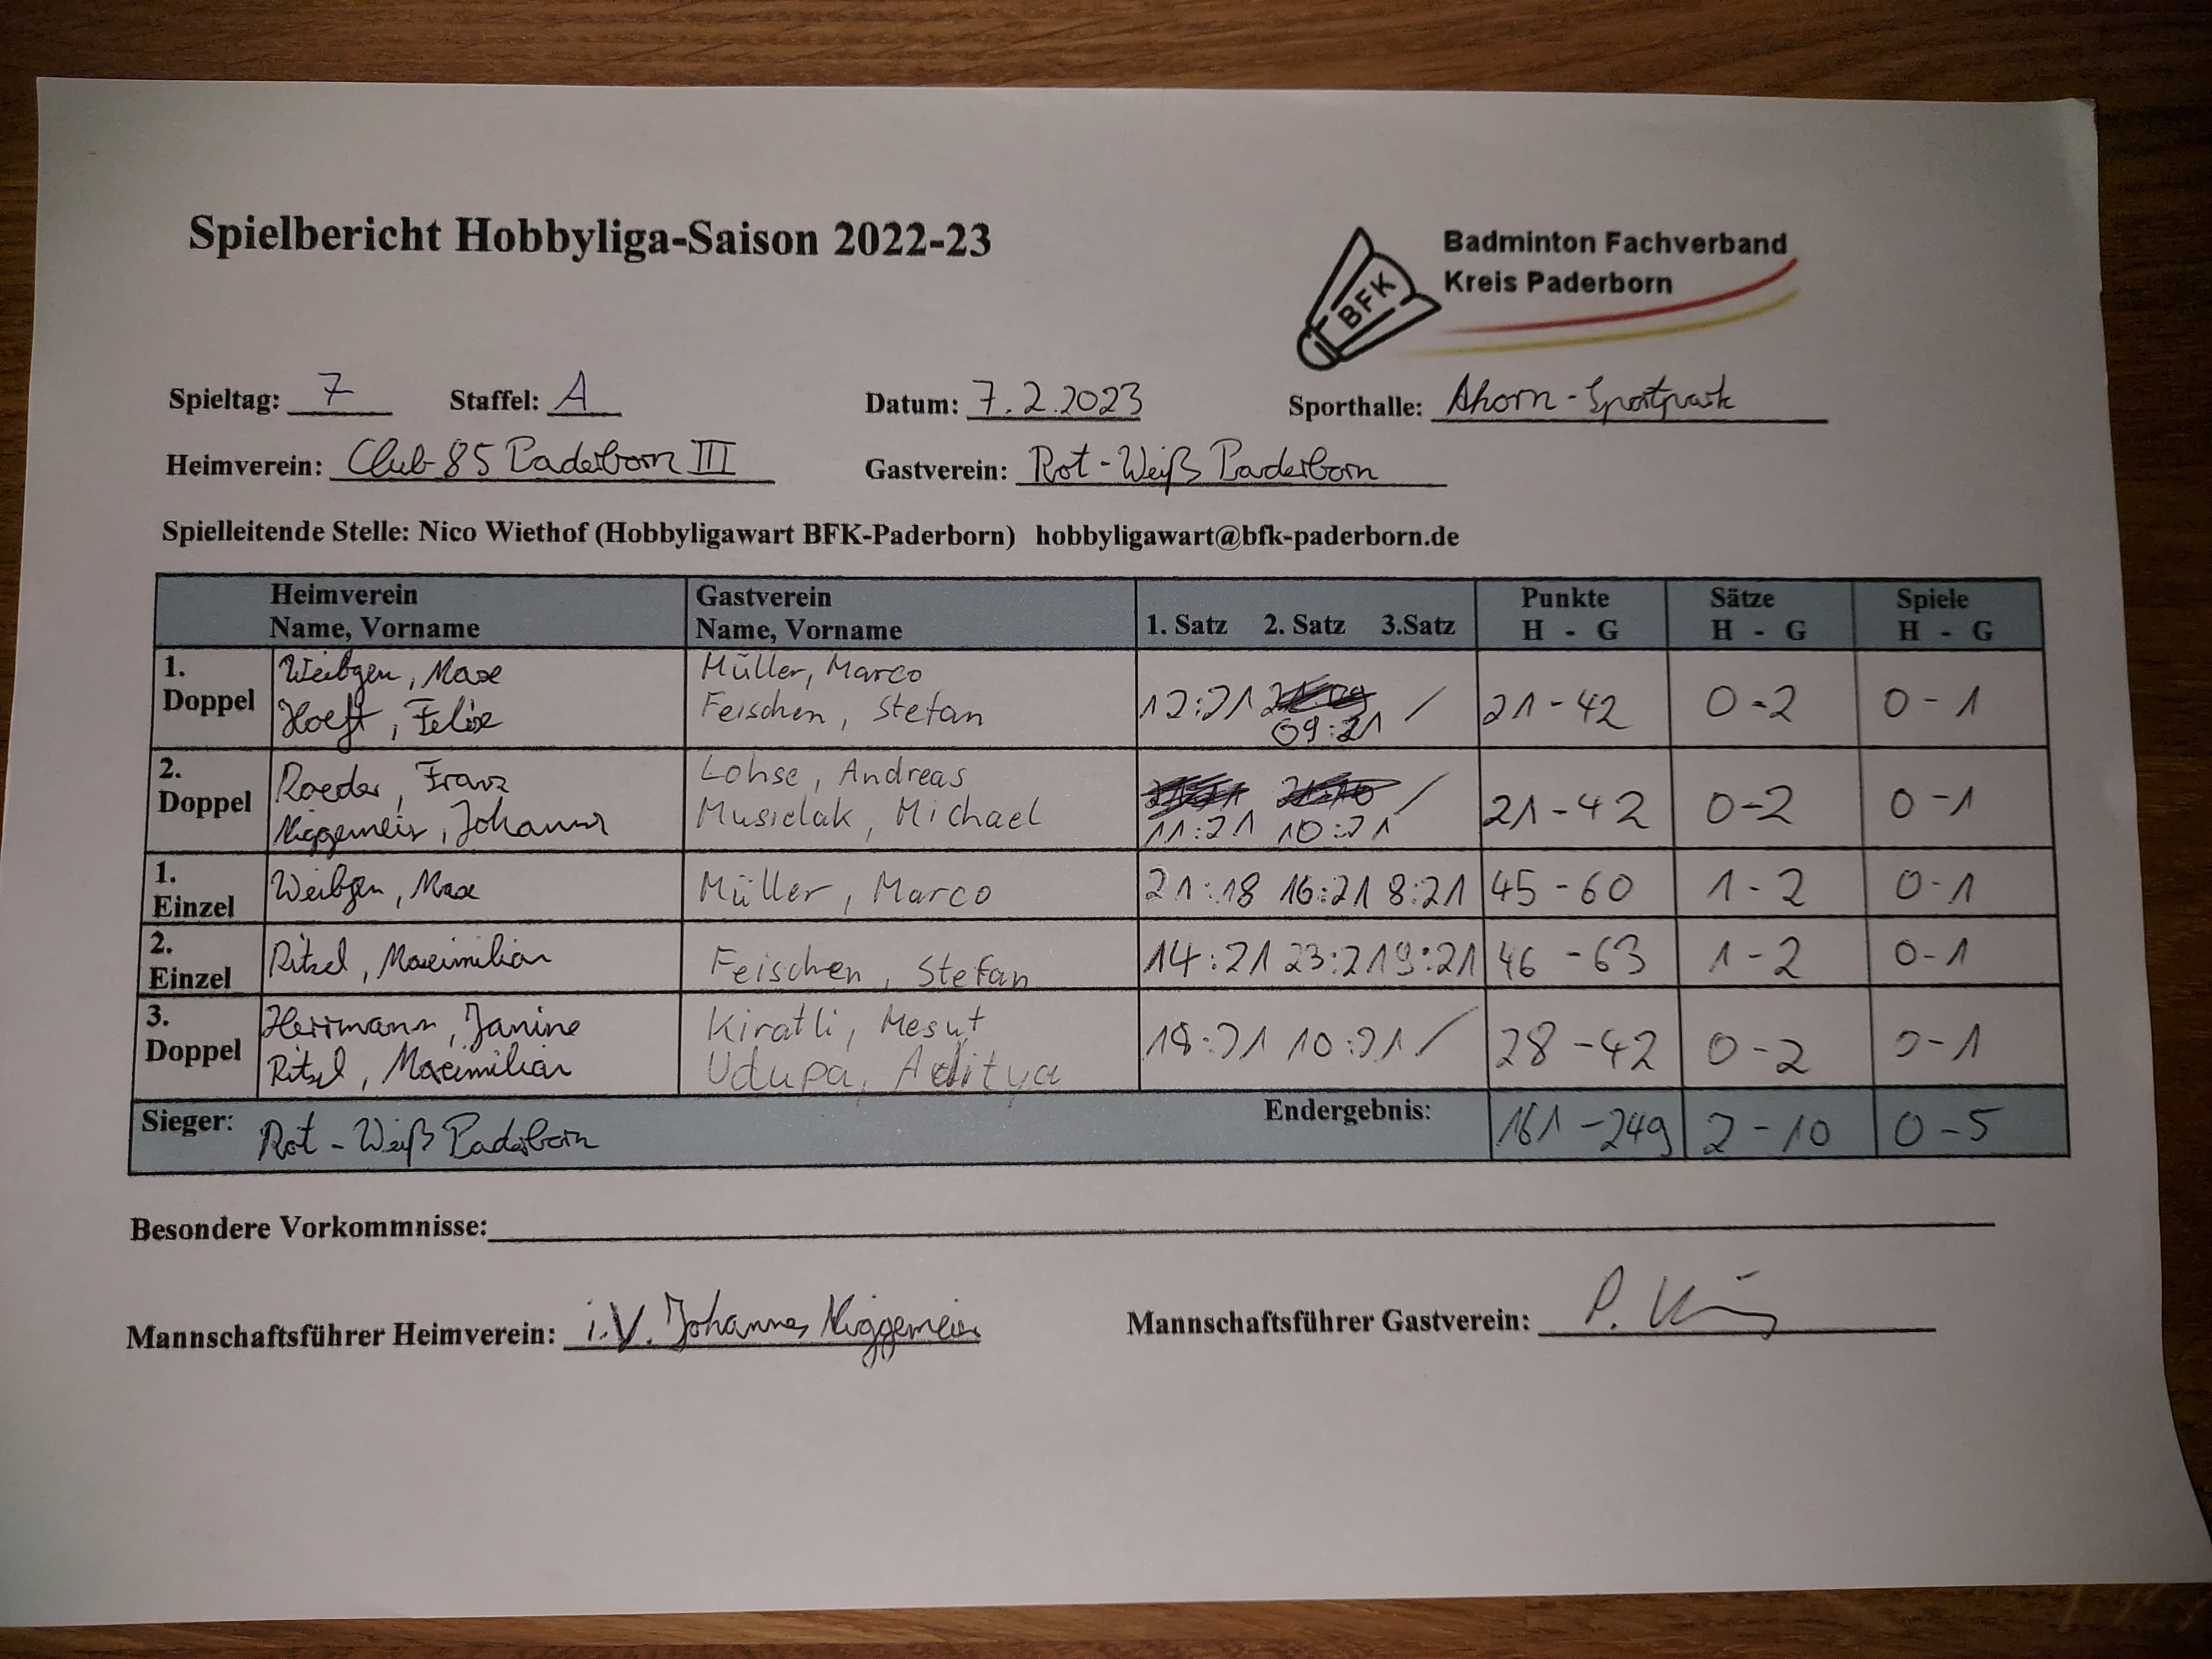 Spielbericht Hobbyliga-Saison 2022-23
Badminton Fachverband
Kreis Paderborn
BFK
Spieltag: 7 Staffel: A Datum: 7.2.2023 Sporthalle: Ahorn-Sportpark
Heimverein: Club 85 Paderborn III Gastverein: Rot-Weiß Paderborn
Spielleitende Stelle: Nico Wiethof (Hobbyligawart BFK-Paderborn) hobbyligawart@bfk-paderborn.de
Heimverein Gastverein Punkte Sätze Spiele
Name, Vorname Name, Vorname 1. Satz 2. Satz 3.Satz H - G H - G H - G
1. Weibgen, Max Müller, Marco
Doppel Hoeft, Felix Feischen, Stefan 12:21 09:21 / 21-42 0-2 0-1
2. Roeder, Franz Lohse, Andreas
Doppel Niggemeier, Johannes Musidlak, Michael 11:21 10:21 / 21-42 0-2 0-1
1.
Einzel Weibgen, Max Müller, Marco 21:18 16:21 8:21 45-60 1-2 0-1
2.
Einzel Ritzel, Maximilian Feischen, Stefan 14:21 23:21 9:21 46-63 1-2 0-1
3. Herrmann, Janine Kiratli, Mesut
Doppel Ritzel, Maximilian Udupa, Aditya 18:21 10:21 / 28-42 0-2 0-1
Sieger: Rot-Weiß Paderborn Endergebnis: 161-249 2-10 0-5
Besondere Vorkommnisse:
Mannschaftsführer Heimverein: i.V. Johannes Niggemeier Mannschaftsführer Gastverein: P.